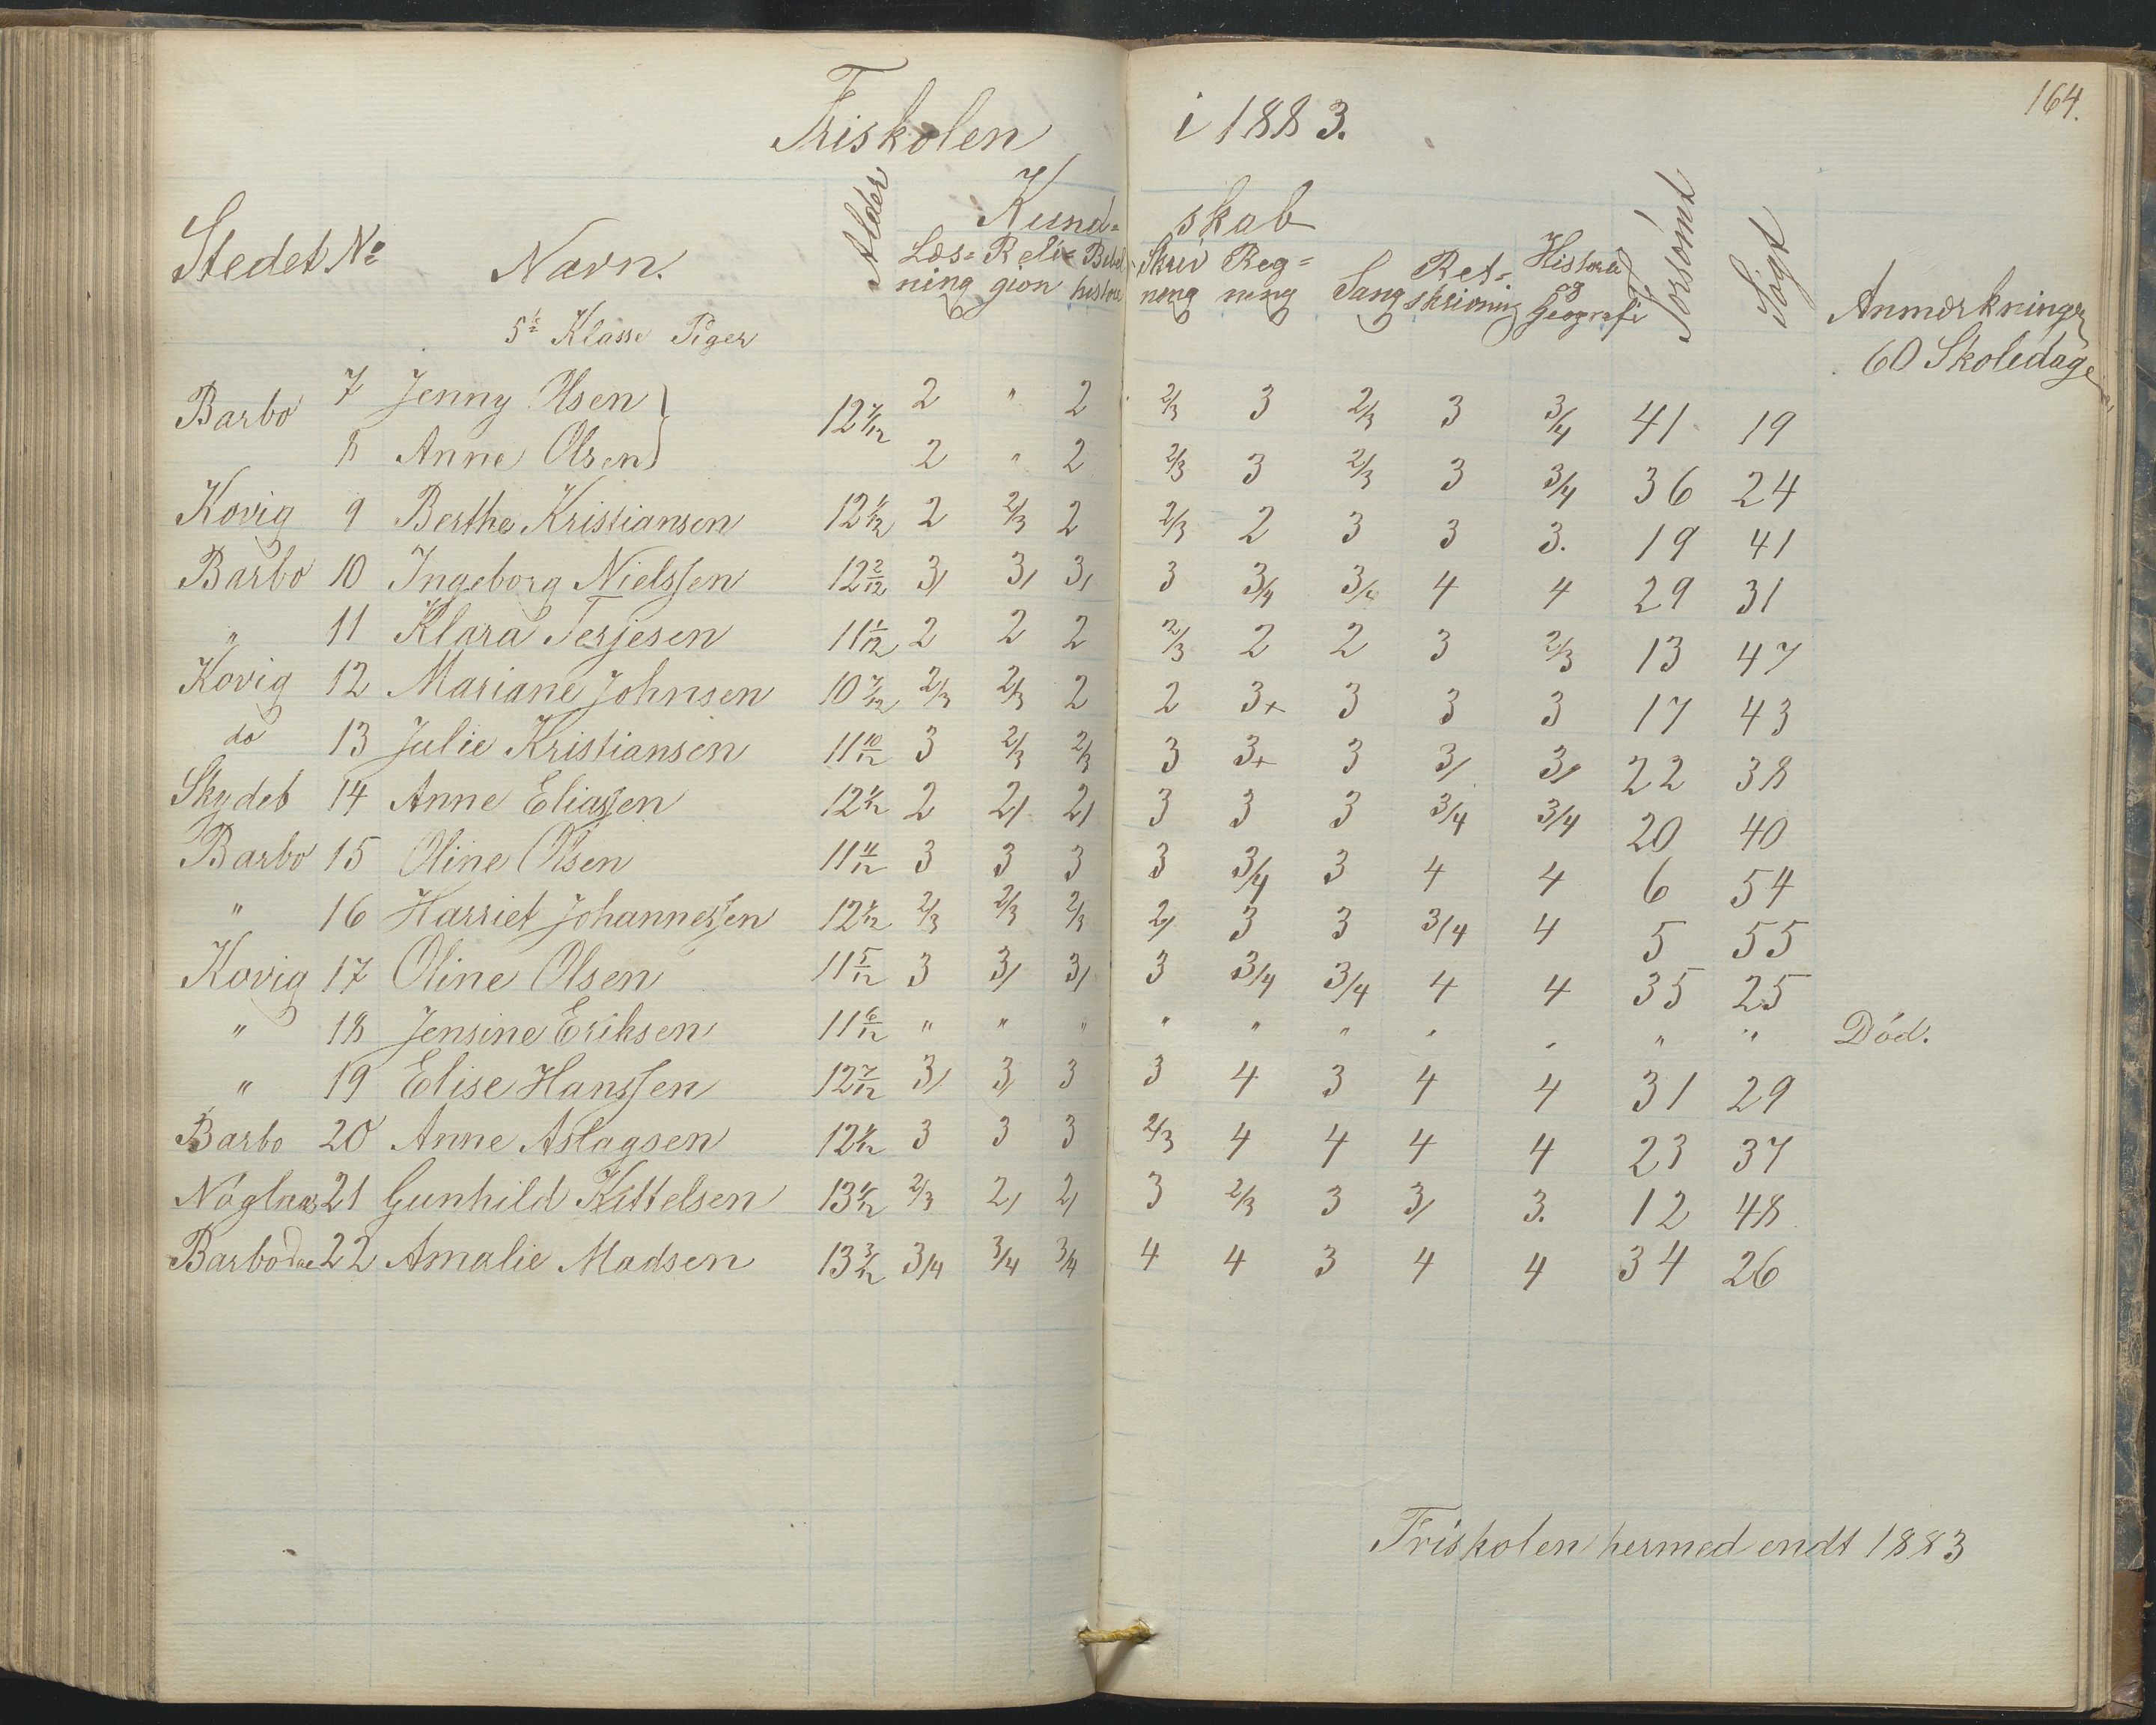 164.
Friskolen i 1883.
Stedet No Navn. Alder Kund= skab Forsømt Søgt Anmærkninger
Læs= Reli= Bibel Skriv Reg= Sang Ret= Historie
ning gion historie ning ning skrivning og Geografi
5te Klasse Piger 60 Skoledage
Barbo 7 Jenny Olsen } 12 2 " 2 2/3 3 2/3 3 3/4 41 19
8 Anne Olsen 2 " 2 2/3 3 2/3 3 3/4 36 24
Kovig 9 Berthe Kristiansen 12 2 2/3 2 2/3 2 3 3 3. 19 41
Barbo 10 Ingeborg Nielssen 12 2/12 3/ 3/ 3/ 3 3/4 3/4 4 4 29 31
" 11 Klara Terjesen 11 1/12 2 2 2 2/3 2 2 3 2/3 13 47
Kovig 12 Mariane Johnsen 10 7/12 2/3 2/3 2 2 3+ 3 3 3 17 43
do 13 Julie Kristiansen 11 10/12 3 2/3 2/3 3 3+ 3 3/ 3/ 22 38
Skydeb 14 Anne Eliassen 12 2 2/ 2/ 3 3 3 3/4 3/4 20 40
Barbo 15 Oline Olsen 11 3 3 3 3 3/4 3 4 4 6 54
" 16 Harriet Johannessen 12 2/3 2/3 2/3 2/ 3 3 3/4 4 5 55
Kovig 17 Oline Olsen 11 5/12 3 3/ 3/ 3 3/4 3/4 4 4 35 25
" 18 Jensine Eriksen 11 6/12 " " " " " " " " " " Død.
" 19 Elise Hanssen 12 7/12 3/ 3/ 3 3 4 3 4 4 31 29
Barbo 20 Anne Aslagsen 12 3 3 3 2/3 4 4 4 4 23 37
21 Gunhild Kittelsen 13 2/3 2/ 2/ 3 2/3 3 3/ 3. 12 48
Barbo 22 Amalie Madsen 13 3/12 3/4 3/4 3/4 4 4 3 4 4 34 26
Friskolen hermed endt 1883